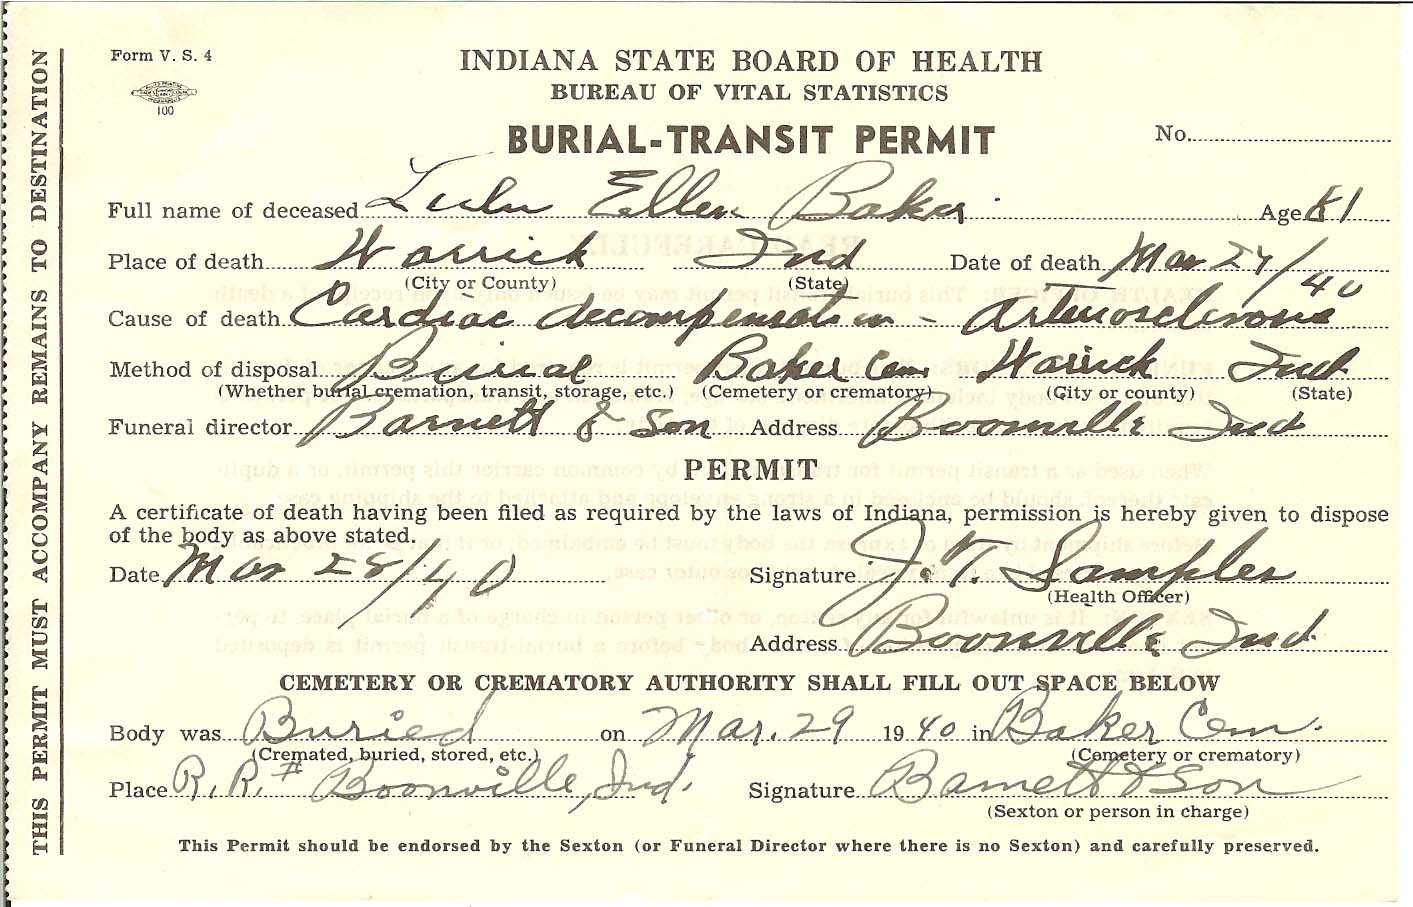 THIS PERMIT MUST ACCOMPANY REMAINS TO DESTINATION
Form V. S. 4
100
INDIANA STATE BOARD OF HEALTH
BUREAU OF VITAL STATISTICS
BURIAL-TRANSIT PERMIT
No.
Full name of deceased Lulu Ellen Baker Age 81
Place of death Warrick Ind Date of death Mar 27/40
(City or County) (State)
Cause of death Cardiac decompensation - Arteriosclerosis
Method of disposal Burial Baker Cem Warrick Ind
(Whether burial, cremation, transit, storage, etc.) (Cemetery or crematory) (City or county) (State)
Funeral director Barnett & Son Address Boonville Ind
PERMIT
A certificate of death having been filed as required by the laws of Indiana, permission is hereby given to dispose
of the body as above stated.
Date Mar 28/40 Signature J. W. Sampler
(Health Officer)
Address Boonville Ind.
CEMETERY OR CREMATORY AUTHORITY SHALL FILL OUT SPACE BELOW
Body was Buried on Mar. 29 1940 in Baker Cem.
(Cremated, buried, stored, etc.) (Cemetery or crematory)
Place R. R. # Boonville, Ind. Signature Barnett & Son
(Sexton or person in charge)
This Permit should be endorsed by the Sexton (or Funeral Director where there is no Sexton) and carefully preserved.